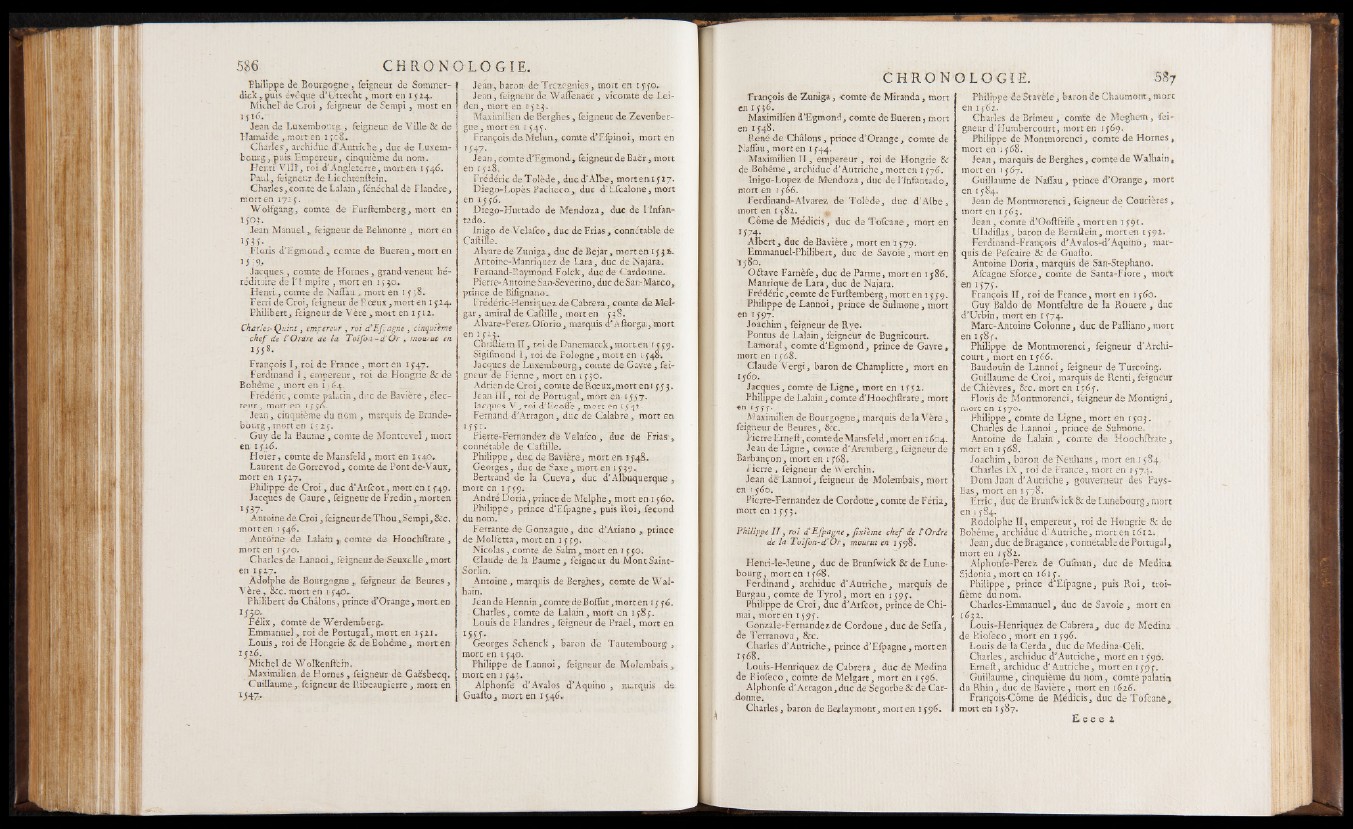 586
CHRONOLOGIE.
Philippe de Bourgogne, ſeigneur de Sommer-
dick, puis évêque d'Utrecht, mort en 1524.
Michel de Croi, ſeigneur de Sempi, mort en
1516.
Jean de Luxembourg, ſeigneur de Ville & de
Hamaide, mort en 1508.
Charles, archiduc d'Autriche, duc de Luxem-
bourg, puis Empereur, cinquième du nom.
Henri VIII, roi d'Angleterre, mort en 1546.
Paul, ſeigneur de Liechtenſtein.
Charles, comte de Lalain, ſénéchal de Flandre,
mort en 1725.
Wolfgang, comte de Furſtemberg, mort en
1502.
Jean Manuel, ſeigneur de Belmonte, mort en
1535.
Floris d'Egmond, comte de Bueren, mort en
1539.
Jacques, comte de Hornes, grand-veneur hé-
réditaire de l'Empire, mort en 1530.
Henri, comte de Naſſau, mort en 1538.
Ferri de Croi, ſeigneur de Rœux, mort en 1524.
Philibert, ſeigneur de Vère, mort en 1512.
Charles-Quint, empereur, roi d'Eſpagne, cinquième
chef de l'Ordre de la Toiſon-d'Or, mourut en
1558.
François I, roi de France, mort en 1547.
Ferdinand I, empereur, roi de Hongrie & de
Bohême, mort en 1564.
Frédéric, comte palatin, duc de Bavière, élec-
teur, mort en 1556.
Jean, cinquième du nom, marquis de Brande-
bourg, mort en 1525.
Guy de la Baume, comte de Montrevel, mort
en 1516.
Hoier, comte de Mansfeld, mort en 1540.
Laurent de Gorrevod, comte de Pont-de-Vaux,
mort en 1527.
Philippe de Croi, duc d'Arſcot, mort en 1549.
Jacques de Gaure, ſeigneur de Freſin, mort en
1537.
Antoine de Croi, ſeigneur de Thou, Sempi, &c.
mort en 1546.
Antoine de Lalain, comte de Hoochſtrate,
mort en 1540.
Charles de Lannoi, ſeigneur de Senzelle, mort
en 1527.
Adolphe de Bourgogne, ſeigneur de Beures,
Vère, &c. mort en 1540.
Philibert du Châlons, prince d'Orange, mort en
1530.
Félix, comte de Werdemberg.
Emmanuel, roi de Portugal, mort en 1521.
Louis, roi de Hongrie & de Bohême, mort en
1526.
Michel de Wolkenſtein.
Maximilien de Hornes, ſeigneur de Gaësbecq.
Guillaume, ſeigneur de Ribeaupierre, mort en
1547.
Jean, baron de Trezegnies, mort en 1550.
Jean, ſeigneur de Waſſenaër, vicomte de Lei-
den, mort en 1523.
Maximilien de Berghes, ſeigneur de Zevenber-
gue, mort en 1545.
François de Melun, comte d'Eſpinoi, mort en
1547.
Jean, comte d'Egmond, ſeigneur de Baër, mort
en 1528.
Frédéric de Tolède, duc d'Albe, mort en 1527.
Diego-Lopès Pacheco, duc d'Eſcalone, mort
en 1556.
Diego-Hurtado de Mendoza, duc de l'Infan-
tado.
Inigo de Velaſco, duc de Frias, connétable de
Caſtille.
Alvare de Zuniga, duc de Bejar, mort en 1532.
Antoine-Manriquez de Lara, duc de Najara.
Fernand-Raymond Folck, duc de Cardonne.
Pierre-Antoine San-Severino, duc de San-Marco,
prince de Biſignano.
Frédéric-Henriquez de Cabrera, comte de Mel-
gar, amiral de Caſtille, mort en 538.
Alvare-Perez Oſorio, marquis d'Aſtorga, mort
en 1523.
Chriſtiern II, roi de Danemarck, mort en 1559.
Sigiſmond I, roi de Pologne, mort en 1548.
Jacques de Luxembourg, comte de Gavre, ſei-
gneur de Fienne, mort en 1530.
Adrien de Croi, comte de Rœux, mort en 1553.
Jean III, roi de Portugal, mort en 1557.
Jacques V, roi d'Ecoſſe, mort en 1542.
Fernand d'Arragon, duc de Calabre, mort en
Pierre-Fernandez de Velaſco, duc de Frias,
connétable de Caſtille.
Philippe, duc de Bavière, mort en 1548.
Georges, duc de Saxe, mort en 1539.
Bertrand de la Cueva, duc d'Albuquerque,
mort en 1559.
André Doria, prince de Melphe, mort en 1560.
Philippe, prince d'Eſpagne, puis Roi, ſecond
du nom.
Ferrante de Gonzague, duc d'Ariano, prince
de Molfetta, mort en 1559.
Nicolas, comte de Salm, mort en 1550.
Claude de la Baume, ſeigneur du Mont Saint-
Sorlin.
Antoine, marquis de Berghes, comte de Wal-
hain.
Jean de Hennin, comte de Boſſut, mort en 1556.
Charles, comte de Lalain, mort en 1585.
Louis de Flandres, ſeigneur de Prael, mort en
1555.
Georges Schenck, baron de Tautembourg,
mort en 1540.
Philippe de Lannoi, ſeigneur de Molembais,
mort en 1543.
Alphonſe d'Avalos d'Aquino, marquis de
Guaſto, mort en 1546.
CHRONOLOGIE.
587
François de Zuniga, comte de Miranda, mort
en 1536.
Maximilien d'Egmond, comte de Bueren, mort
en 1548.
René de Châlons, prince d'Orange, comte de
Naſſau, mort en 1544.
Maximilien II, empereur, roi de Hongrie &
de Bohême, archiduc d'Autriche, mort en 1576.
Inigo-Lopez de Mendoza, duc de l'Infantado,
mort en 1566.
Ferdinand-Alvarez de Tolède, duc d'Albe,
mort en 1582.
Côme de Médicis, duc de Toſcane, mort en
1574.
Albert, duc de Bavière, mort en 1579.
Emmanuel-Philibert, duc de Savoie, mort en
1580.
Octave Farnèſe, duc de Parme, mort en 1586.
Manrique de Lara, duc de Najara.
Frédéric, comte de Furſtemberg, mort en 1559.
Philippe de Lannoi, prince de Sulmone, mort
en 1597.
Joachim, ſeigneur de Rye.
Pontus de Lalain, ſeigneur de Bugnicourt.
Lamoral, comte d'Egmond, prince de Gavre,
mort en 1568.
Claude Vergi, baron de Champlitte, mort en
1560.
Jacques, comte de Ligne, mort en 1552.
Philippe de Lalain, comte d'Hoochſtrate, mort
en 1555.
Maximilien de Bourgogne, marquis de la Vère,
ſeigneur de Beures, &c.
Pierre Erneſt, comte de Mansfeld, mort en 1604.
Jean de Ligne, comte d'Aremberg, ſeigneur de
Barbançon, mort en 1568.
Pierre, ſeigneur de Werchin.
Jean de Lannoi, ſeigneur de Molembais, mort
en 1560.
Pierre-Fernandez de Cordoue, comte de Féria,
mort en 1553.
Philippe II, roi d'Eſpagne, ſixième chef de l'Ordre
de la Toiſon-d'Or, mourut en 1598.
Henri-le-Jeune, duc de Brunſwick & de Lune-
bourg, mort en 1568.
Ferdinand, archiduc d'Autriche, marquis de
Burgau, comte de Tyrol, mort en 1595.
Philippe de Croi, duc d'Arſcot, prince de Chi-
mai, mort en 1595.
Gonzale-Fernandez de Cordoue, duc de Seſſa,
de Terranova, &c.
Charles d'Autriche, prince d'Eſpagne, mort en
1568.
Louis-Henriquez de Cabrera, duc de Medina
de Rioſeco, comte de Melgart, mort en 1596.
Alphonſe d'Arragon, duc de Segorbe & de Car-
donne.
Charles, baron de Berlaymont, mort en 1596.
Philippe de Stavèle, baron de Chaumont, mort
en 1562.
Charles de Brimeu, comte de Meghem, ſei-
gneur d'Humbercourt, mort en 1569.
Philippe de Montmorenci, comte de Hornes,
mort en 1568.
Jean, marquis de Berghes, comte de Walhain,
mort en 1567.
Guillaume de Naſſau, prince d'Orange, mort
en 1584.
Jean de Montmorenci, ſeigneur de Courières,
mort en 1563.
Jean, comte d'Ooſtfriſe, mort en 1591.
Uladiſlas, baron de Bernſtein, mort en 1592.
Ferdinand-François d'Avalos-d'Aquino, mar-
quis de Peſcaire & de Guaſto.
Antoine Doria, marquis de San-Stephano.
Aſcagne Sforce, comte de Santa-Fiore, mort
en 1575.
François II, roi de France, mort en 1560.
Guy Baldo de Montfeltre de la Rouere, duc
d'Urbin, mort en 1574.
Marc-Antoine Colonne, duc de Palliano, mort
en 1585.
Philippe de Montmorenci, ſeigneur d'Archi-
court, mort en 1566.
Baudouin de Lannoi, ſeigneur de Turcoing.
Guillaume de Croi, marquis de Renti, ſeigneur
de Chièvres, &c. mort en 1565.
Floris de Montmorenci, ſeigneur de Montigni,
mort en 1570.
Philippe, comte de Ligne, mort en 1593.
Charles de Lannoi, prince de Sulmone.
Antoine de Lalain, comte de Hoochſtrate,
mort en 1568.
Joachim, baron de Neuhaus, mort en 1584.
Charles IX, roi de France, mort en 1574.
Dom Juan d'Autriche, gouverneur des Pays-
Bas, mort en 1578.
Erric, duc de Brunſwick & de Lunebourg, mort
en 1584.
Rodolphe II, empereur, roi de Hongrie & de
Bohême, archiduc d'Autriche, mort en 1612.
Jean, duc de Bragance, connétable de Portugal,
mort en 1582.
Alphonſe-Perez de Guſman, duc de Medina
Sidonia, mort en 1615.
Philippe, prince d'Eſpagne, puis Roi, troi-
ſième du nom.
Charles-Emmanuel, duc de Savoie, mort en
1632.
Louis-Henriquez de Cabrera, duc de Medina
de Rioſeco, mort en 1596.
Louis de la Cerda, duc de Medina-Celi.
Charles, archiduc d'Autriche, mort en 1590.
Erneſt, archiduc d'Autriche, mort en 1595.
Guillaume, cinquième du nom, comte palatin
du Rhin, duc de Bavière, mort en 1626.
François-Côme de Médicis, duc de Toſcane,
mort en 1587.
Eeee 2